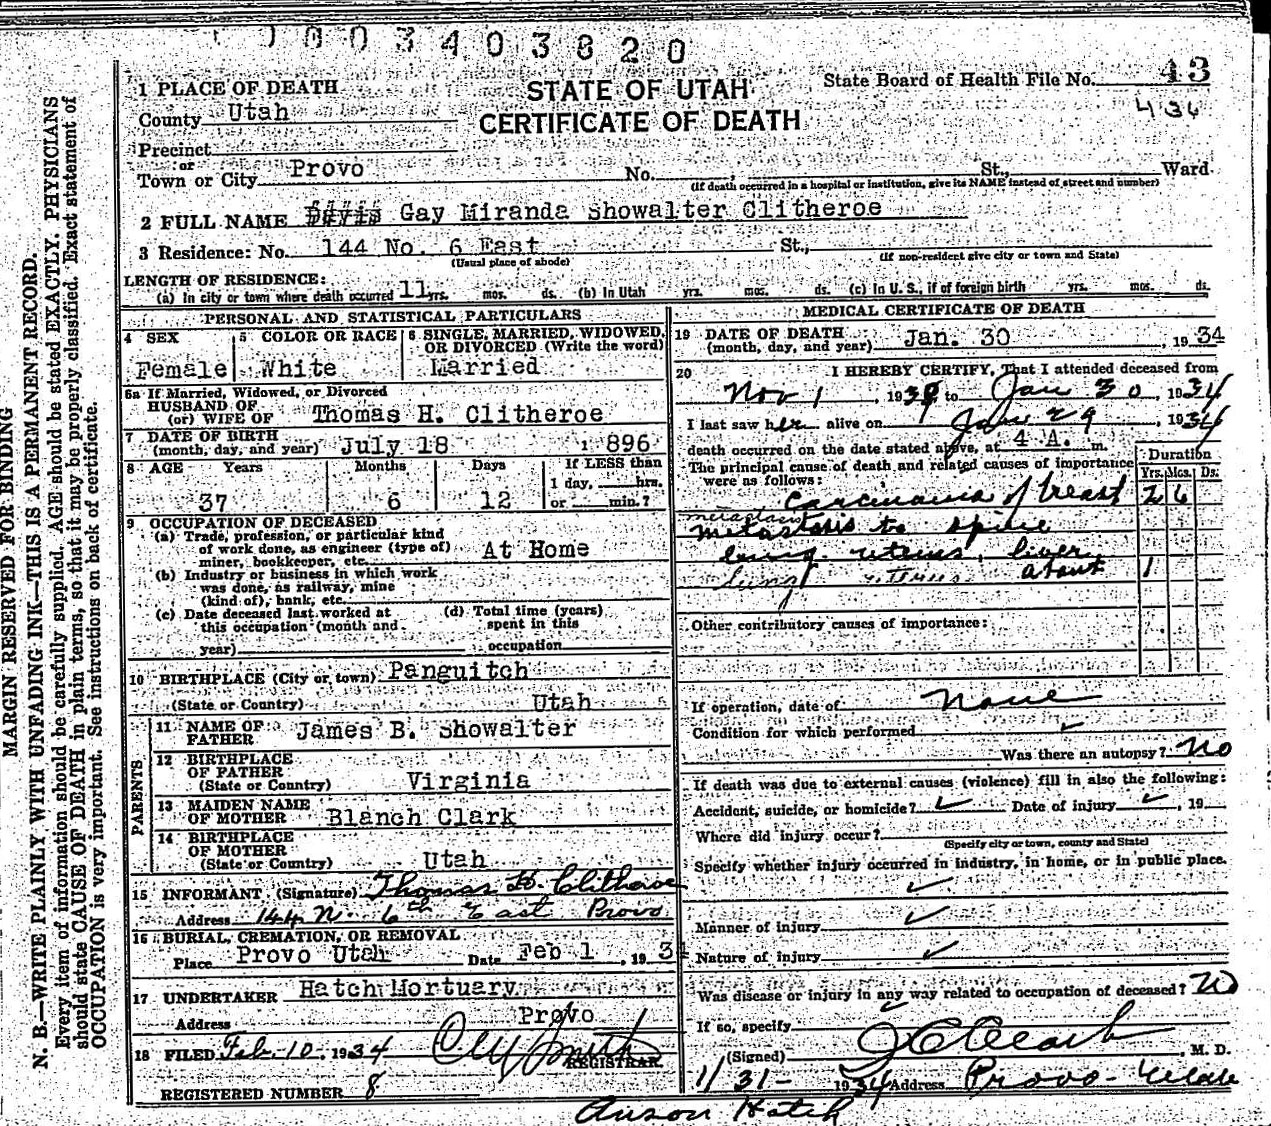 003403820
1 PLACE OF DEATH
STATE OF UTAH
State Board of Health File No. 43
County Utah
CERTIFICATE OF DEATH
436
Precinct
or
Town or City Provo No. , St., Ward
(If death occurred in a hospital or institution, give its NAME instead of street and number)
2 FULL NAME Gay Miranda Showalter Clitheroe
3 Residence: No. 144 No. 6 East St.,
(Usual place of abode) (If non-resident give city or town and State)
LENGTH OF RESIDENCE:
(a) In city or town where death occurred 11 yrs. mos. ds. (b) In Utah yrs. mos. ds. (c) In U. S., if of foreign birth yrs. mos. ds.
PERSONAL AND STATISTICAL PARTICULARS
4 SEX 5 COLOR OR RACE 6 SINGLE, MARRIED, WIDOWED, OR DIVORCED (Write the word)
Female White Married
6a If Married, Widowed, or Divorced
HUSBAND OF
(or) WIFE OF Thomas H. Clitheroe
7 DATE OF BIRTH
(month, day, and year) July 18 1896
8 AGE Years Months Days If LESS than
1 day, hrs.
37 6 12 or min.?
9 OCCUPATION OF DECEASED
(a) Trade, profession, or particular kind
of work done, as engineer (type of)
miner, bookkeeper, etc. At Home
(b) Industry or business in which work
was done, as railway, mine
(kind of), bank, etc.
(c) Date deceased last worked at (d) Total time (years)
this occupation (month and spent in this
year) occupation
10 BIRTHPLACE (City or town) Panguitch
(State or Country) Utah
PARENTS
11 NAME OF
FATHER James B. Showalter
12 BIRTHPLACE
OF FATHER
(State or Country) Virginia
13 MAIDEN NAME
OF MOTHER Blanch Clark
14 BIRTHPLACE
OF MOTHER
(State or Country) Utah
15 INFORMANT (Signature) Thomas H. Clitheroe
Address 144 N. 6th East Provo
16 BURIAL, CREMATION, OR REMOVAL
Place Provo Utah Date Feb 1, 1934
17 UNDERTAKER Hatch Mortuary
Address Provo
18 FILED Feb. 10, 1934
REGISTRAR
REGISTERED NUMBER 8
MEDICAL CERTIFICATE OF DEATH
19 DATE OF DEATH
(month, day, and year) Jan. 30, 1934
20 I HEREBY CERTIFY, That I attended deceased from
Nov 1, 193 to Jan 30, 1934
I last saw her alive on Jan 29, 1934
death occurred on the date stated above, at 4 A. m.
The principal cause of death and related causes of importance
were as follows:
Duration
Yrs. Mos. Ds.
Carcinoma of breast 2 6
metastasis
metastasis to spine
lung uterus, liver
lung uterus about 1
Other contributory causes of importance:
If operation, date of None
Condition for which performed
Was there an autopsy? No
If death was due to external causes (violence) fill in also the following:
Accident, suicide, or homicide? Date of injury , 19
Where did injury occur?
(Specify city or town, county and State)
Specify whether injury occurred in industry, in home, or in public place.
Manner of injury
Nature of injury
Was disease or injury in any way related to occupation of deceased? No
If so, specify
(Signed) , M. D.
1/31- 1934 Address Provo-Utah
Anson Hatch
MARGIN RESERVED FOR BINDING
N. B.—WRITE PLAINLY WITH UNFADING INK—THIS IS A PERMANENT RECORD.
Every item of information should be carefully supplied. AGE should be stated EXACTLY. PHYSICIANS
should state CAUSE OF DEATH in plain terms, so that it may be properly classified. Exact statement of
OCCUPATION is very important. See instructions on back of certificate.